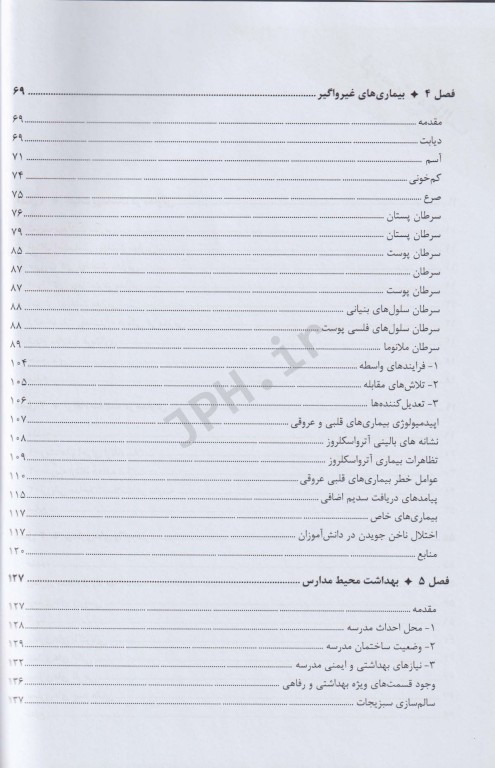 فصل ۴ ✦ بیماری‌های غیرواگیر ........ ۶۹
مقدمه ........ ۶۹
دیابت ........ ۶۹
آسم ........ ۷۱
کم‌خونی ........ ۷۴
صرع ........ ۷۵
سرطان پستان ........ ۷۶
سرطان پستان ........ ۷۹
سرطان پوست ........ ۸۵
سرطان ........ ۸۷
سرطان پوست ........ ۸۷
سرطان سلول‌های بنیانی ........ ۸۸
سرطان سلول‌های فلسی پوست ........ ۸۸
سرطان ملانوما ........ ۸۹
۱- فرایندهای واسطه ........ ۱۰۴
۲- تلاش‌های مقابله ........ ۱۰۵
۳- تعدیل‌کننده‌ها ........ ۱۰۶
اپیدمیولوژی بیماری‌های قلبی و عروقی ........ ۱۰۷
نشانه های بالینی آترواسکلروز ........ ۱۰۸
تظاهرات بیماری آترواسکلروز ........ ۱۰۹
عوامل خطر بیماری‌های قلبی عروقی ........ ۱۱۰
پیامدهای دریافت سدیم اضافی ........ ۱۱۵
بیماری‌های خاص ........ ۱۱۷
اختلال ناخن جویدن در دانش‌آموزان ........ ۱۱۷
منابع ........ ۱۲۰
فصل ۵ ✦ بهداشت محیط مدارس ........ ۱۲۷
مقدمه ........ ۱۲۷
۱- محل احداث مدرسه ........ ۱۲۸
۲- وضعیت ساختمان مدرسه ........ ۱۲۹
۳- نیازهای بهداشتی و ایمنی مدرسه ........ ۱۳۲
وجود قسمت‌های ویژه بهداشتی و رفاهی ........ ۱۳۶
سالم‌سازی سبزیجات ........ ۱۳۷
JPH.ir